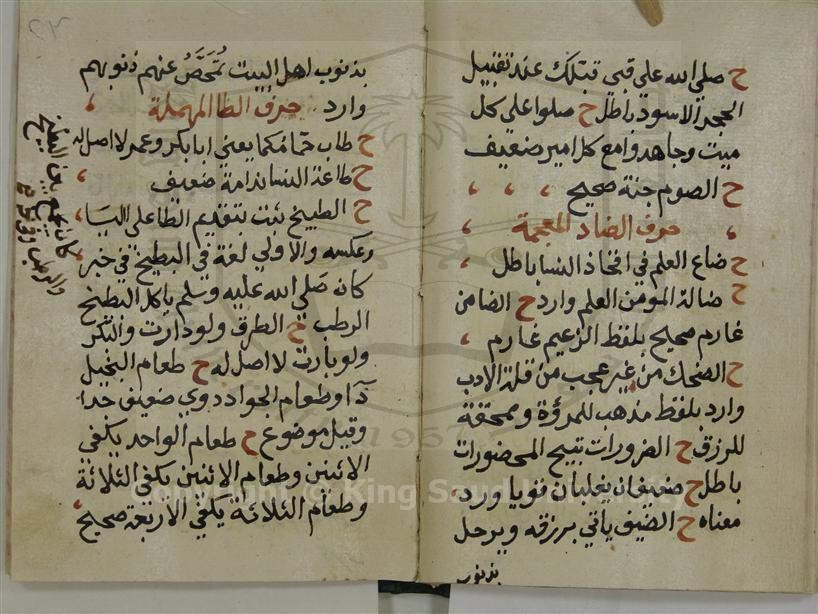 ح صلى الله على قبي قبتلك عند تقبيل
الحجر الاسود باطل ح صلوا على كل
ميت وجاهدوا مع كل امير ضعيف
ح الصوم جنة صحيح
حرف الضاد المعجمة
ح ضاع العلم في افخاذ النسا باطل
ح ضالة المومن العلم وارد ح الضامن
غارم صحيح بلفظ الزعيم غارم
ح الضحك من غير عجب من قلة الادب
وارد بلفظ مذهب للمروة وممحقة
للرزق ح الضرورات تبيح المحضورات
باطل ح ضعيفان يغلبان قويا ورد
معناه ح الضيف ياتي برزقه ويرحل
بذنوب
٢٣
بذنوب اهل البيت تُمَحَّصُ عنهم ذنوبهم
وارد حرف الطا المهملة
ح طاب حمامكما يعني ابا بكر وعمر لا اصل له
ح طاعة النسا ندامة ضعيف
ح الطبيخ بتقديم الطا على البا
وعكسه والاولى لغة في البطيخ في خبر
كان صلى الله عليه وسلم ياكل البطيخ
الرطب ح الطرق ولو دارت والبكر
ولو بارت لا اصل له ح طعام البخيل
دآ وطعام الجواد دوي ضعيف جدا
وقيل موضوع ح طعام الواحد يكفي
الاثنين وطعام الاثنين يكفي الثلاثة
وطعام الثلاثة يكفي الاربعة صحيح
كان يجمع بين البطيخ
والرطب
Copyright © King Saud University
1957